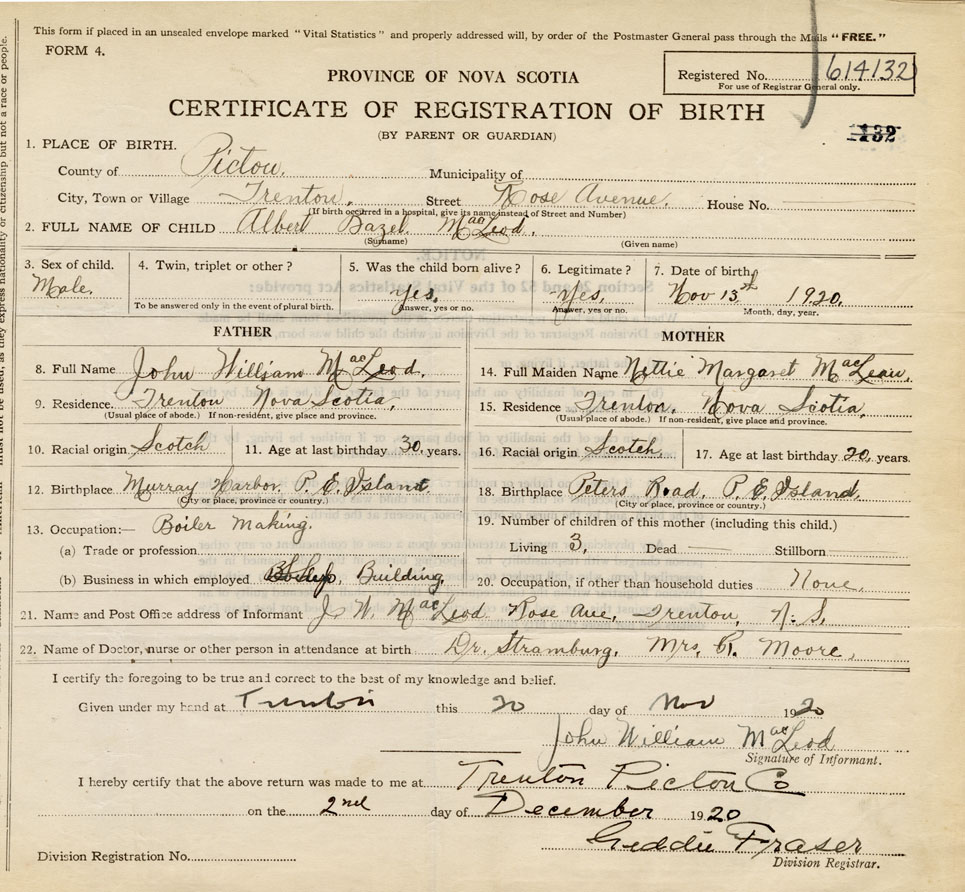 This form if placed in an unsealed envelope marked "Vital Statistics" and properly addressed will, by order of the Postmaster General pass through the Mails "FREE."
FORM 4.
PROVINCE OF NOVA SCOTIA
Registered No. 614132
For use of Registrar General only.
CERTIFICATE OF REGISTRATION OF BIRTH
(BY PARENT OR GUARDIAN)
132
1. PLACE OF BIRTH.
County of Pictou. Municipality of
City, Town or Village Trenton. Street Rose Avenue. House No.
(If birth occurred in a hospital, give its name instead of Street and Number)
2. FULL NAME OF CHILD Albert Bazel MacLeod.
(Surname) (Given name)
3. Sex of child. 4. Twin, triplet or other? 5. Was the child born alive? 6. Legitimate? 7. Date of birth
Male. Yes. Yes. Nov 13th 1920.
To be answered only in the event of plural birth. Answer, yes or no. Answer, yes or no. Month, day, year.
FATHER MOTHER
8. Full Name John William MacLeod. 14. Full Maiden Name Nettie Margaret MacLean.
9. Residence. Trenton Nova Scotia. 15. Residence Trenton. Nova Scotia.
(Usual place of abode.) If non-resident, give place and province. (Usual place of abode.) If non-resident, give place and province.
10. Racial origin Scotch 11. Age at last birthday 30. years. 16. Racial origin Scotch. 17. Age at last birthday 20. years.
12. Birthplace Murray Harbor. P. E. Island. 18. Birthplace Peters Road. P. E. Island.
(City or place, province or country.) (City or place, province or country.)
13. Occupation:— Boiler Making. 19. Number of children of this mother (including this child.)
(a) Trade or profession Living 3. Dead Stillborn
(b) Business in which employed Building. 20. Occupation, if other than household duties None.
21. Name and Post Office address of Informant J. W. MacLeod Rose Ave. Trenton, N. S.
22. Name of Doctor, nurse or other person in attendance at birth Dr. Stramburg. Mrs. R. Moore.
I certify the foregoing to be true and correct to the best of my knowledge and belief.
Given under my hand at Trenton this 20 day of Nov 1920
John William MacLeod
Signature of Informant.
I hereby certify that the above return was made to me at Trenton Pictou Co
on the 2nd day of December 1920
Fraser
Division Registration No. Division Registrar.